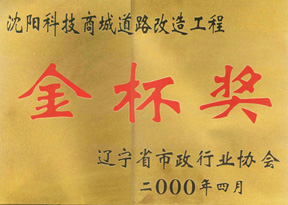 沈阳科技商城道路改造工程
金杯奖
辽宁省市政行业协会
二000年四月